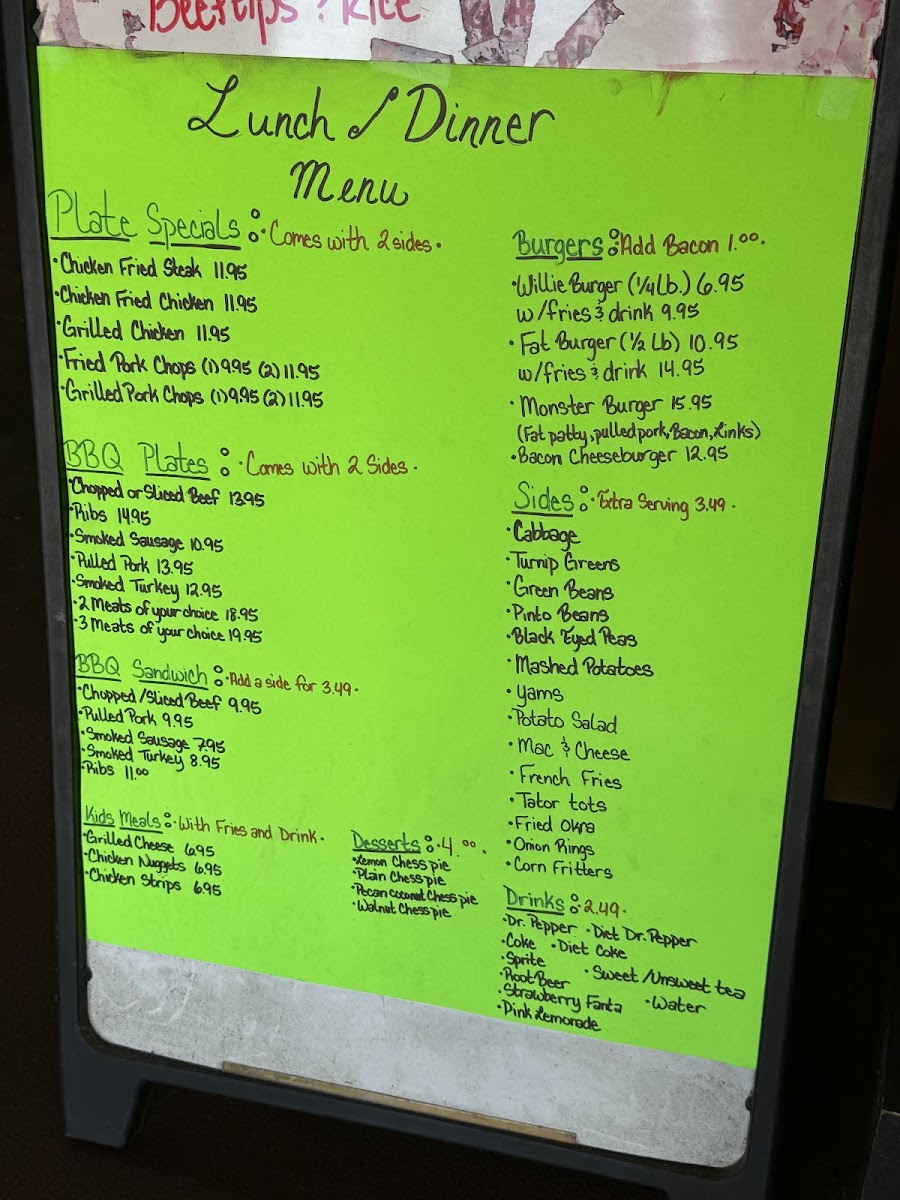 Beef tips ? Rice
Lunch / Dinner
Menu
Plate Specials : · Comes with 2 sides ·
· Chicken Fried Steak 11.95
· Chicken Fried Chicken 11.95
· Grilled Chicken 11.95
· Fried Pork Chops (1) 9.95 (2) 11.95
· Grilled Pork Chops (1) 9.95 (2) 11.95
BBQ Plates : · Comes with 2 Sides ·
· Chopped or Sliced Beef 13.95
· Ribs 14.95
· Smoked Sausage 10.95
· Pulled Pork 13.95
· Smoked Turkey 12.95
· 2 Meats of your choice 18.95
· 3 Meats of your choice 19.95
BBQ Sandwich : · Add a side for 3.49 ·
· Chopped / Sliced Beef 9.95
· Pulled Pork 9.95
· Smoked Sausage 7.95
· Smoked Turkey 8.95
· Ribs 11.00
Kids Meals : · With Fries and Drink ·
· Grilled Cheese 6.95
· Chicken Nuggets 6.95
· Chicken Strips 6.95
Desserts : · 4.00 ·
· Lemon Chess pie
· Plain Chess pie
· Pecan coconut Chess pie
· Walnut Chess pie
Burgers : · Add Bacon 1.00 ·
· Willie Burger (1/4 Lb.) 6.95
w/fries & drink 9.95
· Fat Burger (1/2 Lb) 10.95
w/fries & drink 14.95
· Monster Burger 15.95
(Fat patty, pulled pork, Bacon, Links)
· Bacon Cheeseburger 12.95
Sides : · Extra Serving 3.49 ·
· Cabbage
· Turnip Greens
· Green Beans
· Pinto Beans
· Black Eyed Peas
· Mashed Potatoes
· Yams
· Potato Salad
· Mac & Cheese
· French Fries
· Tator tots
· Fried Okra
· Onion Rings
· Corn Fritters
Drinks : · 2.49 ·
· Dr. Pepper · Diet Dr. Pepper
· Coke · Diet Coke
· Sprite · Sweet / Unsweet tea
· Root Beer
· Strawberry Fanta · Water
· Pink Lemonade